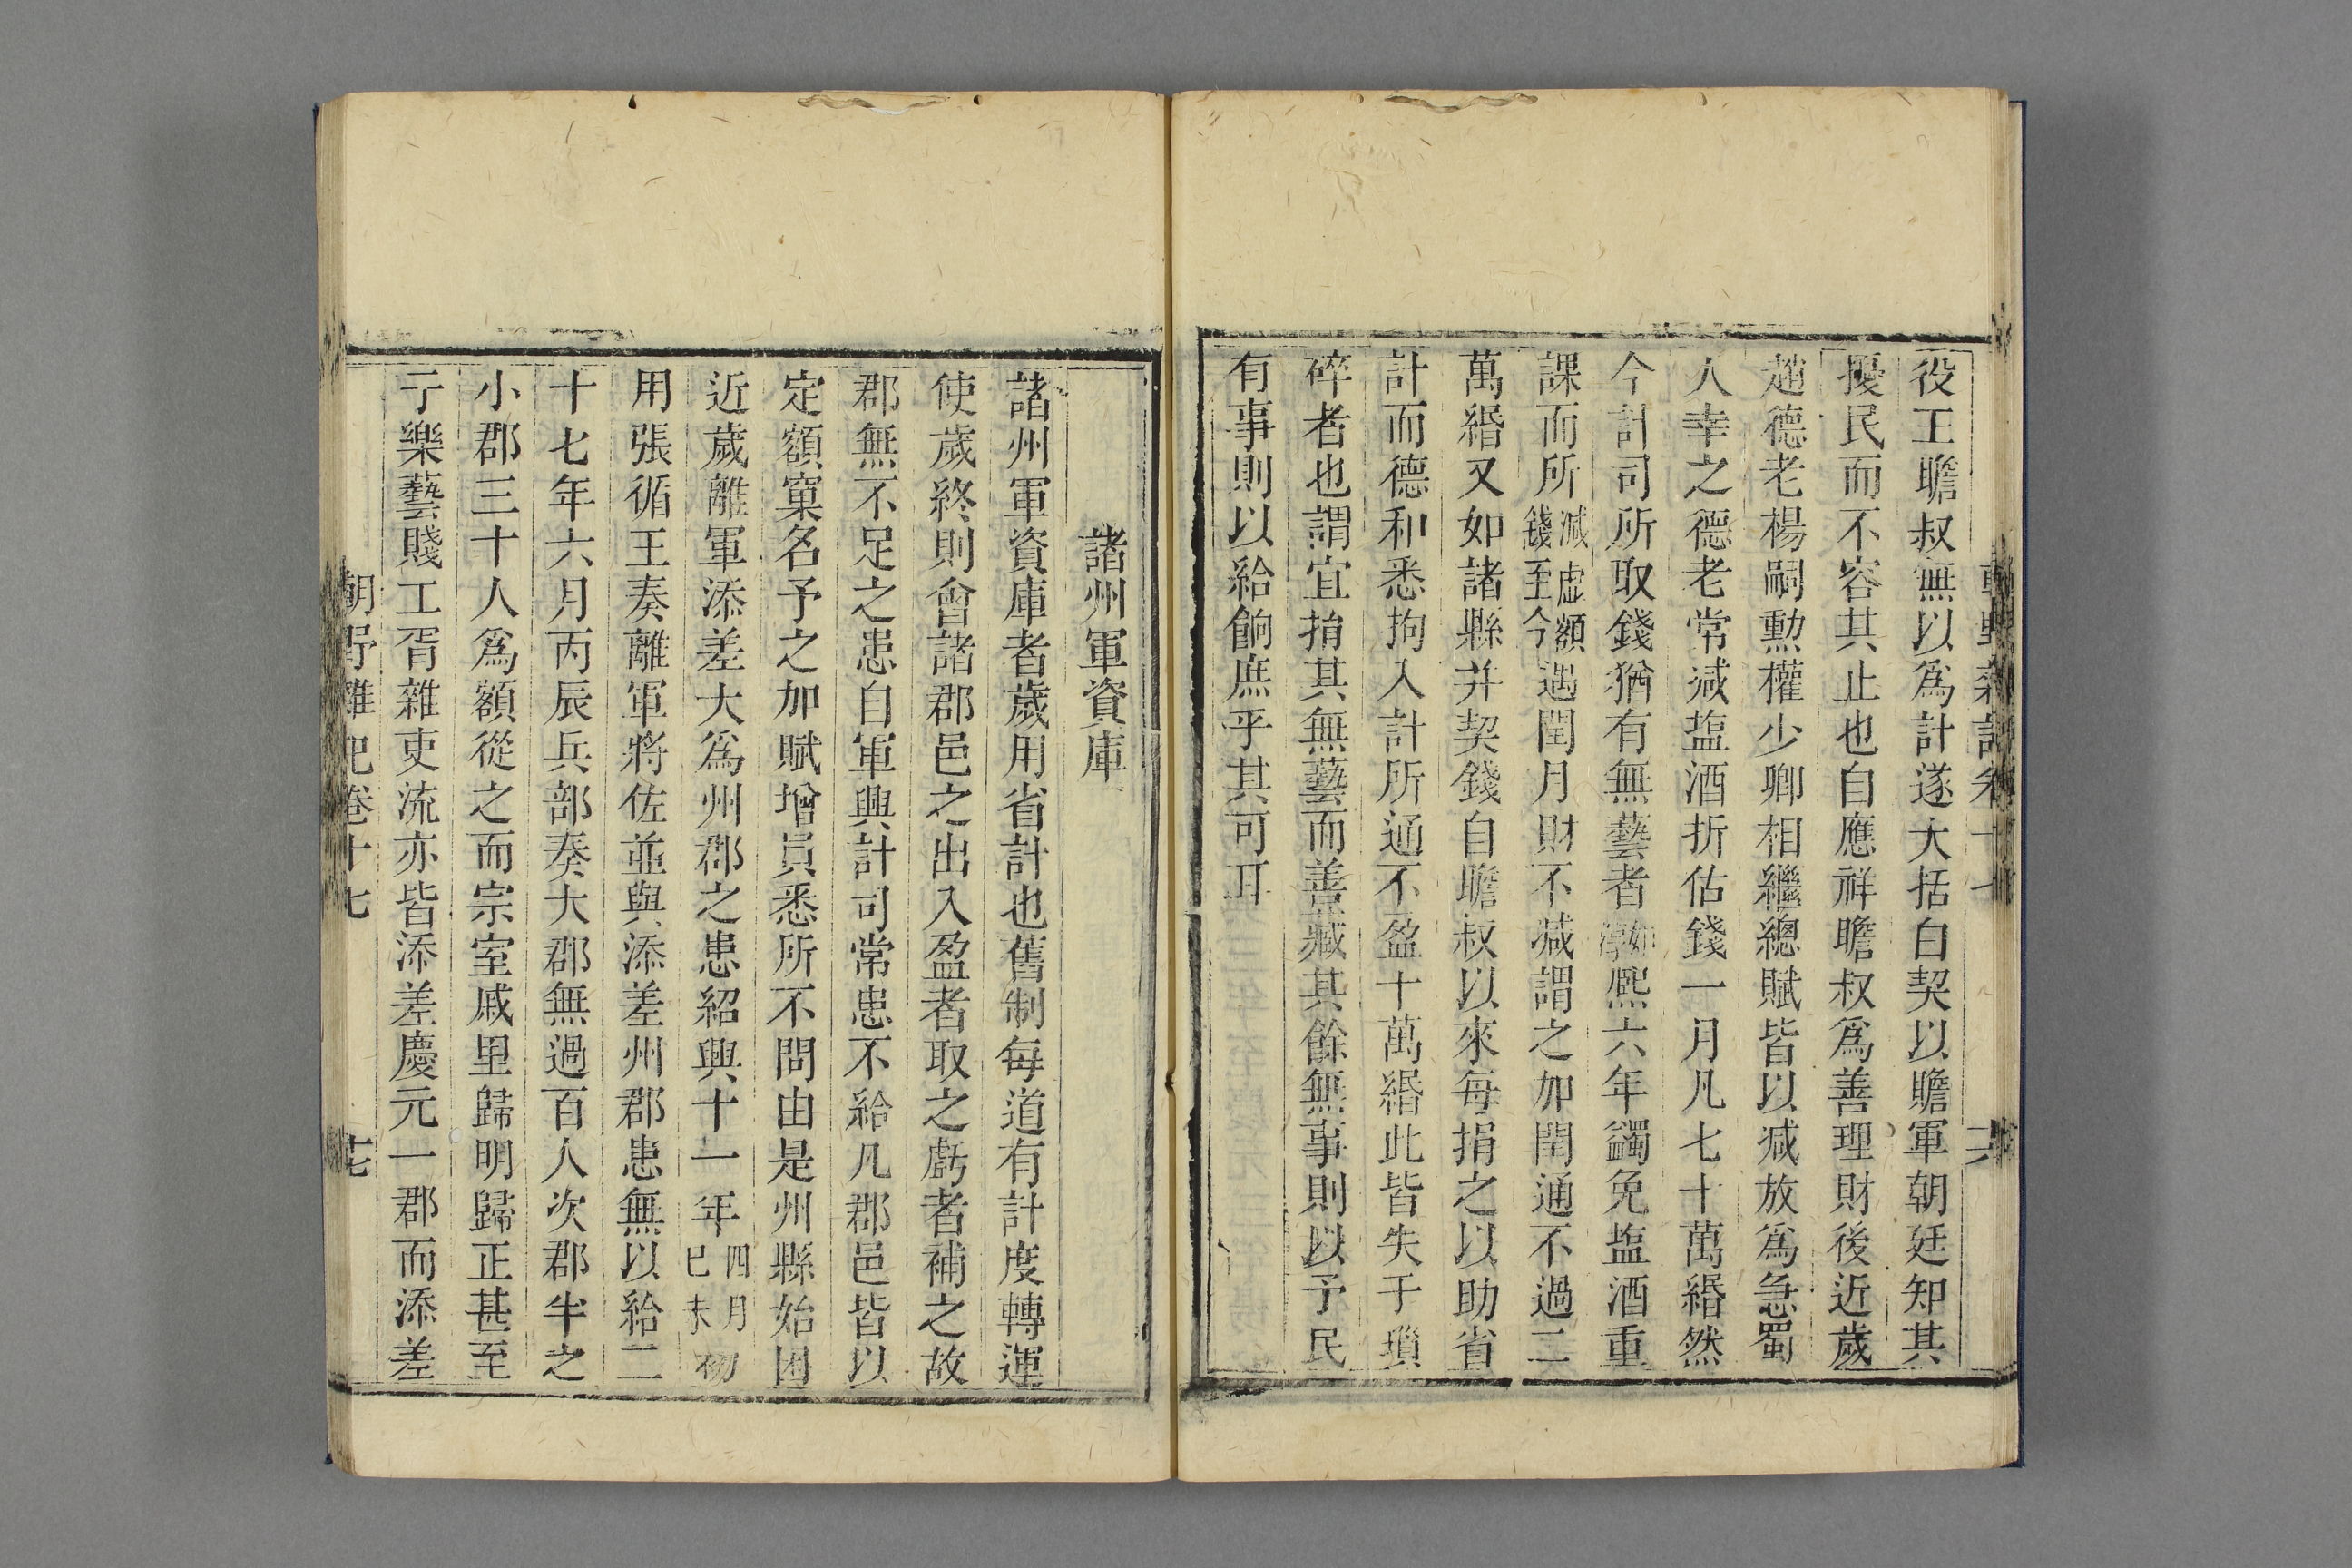 役王瞻叔無以爲計遂大括白契以贍軍朝廷知其
擾民而不容其止也自應祥瞻叔爲善理財後近歲
趙德老楊嗣勲權少卿相繼總賦皆以减放爲急蜀
人幸之德老常减塩酒折估錢一月凡七十萬緡然
今計司所取錢猶有無藝者如淳熙六年蠲免塩酒重
課而所减虚額錢至今遇閏月財不减謂之加閏通不過二
萬緡又如諸縣并契錢自瞻叔以來每捐之以助省
計而德和悉拘入計所通不盈十萬緡此皆失于瑣
碎者也謂宜捐其無藝而善藏其餘無事則以予民
有事則以給餉庶乎其可耳
諸州軍資庫
諸州軍資庫者歲用省計也舊制每道有計度轉運
使歲終則會諸郡邑之出入盈者取之虧者補之故
郡無不足之患自軍興計司常患不給凡郡邑皆以
定額窠名予之加賦增員悉所不問由是州縣始困
近歲離軍添差大爲州郡之患紹興十一年四月己未初
用張循王奏離軍將佐並與添差州郡患無以給二
十七年六月丙辰兵部奏大郡無過百人次郡半之
小郡三十人爲額從之而宗室戚里歸明歸正甚至
于樂藝賤工胥雜吏流亦皆添差慶元一郡而添差
朝野雜記卷十七
十七